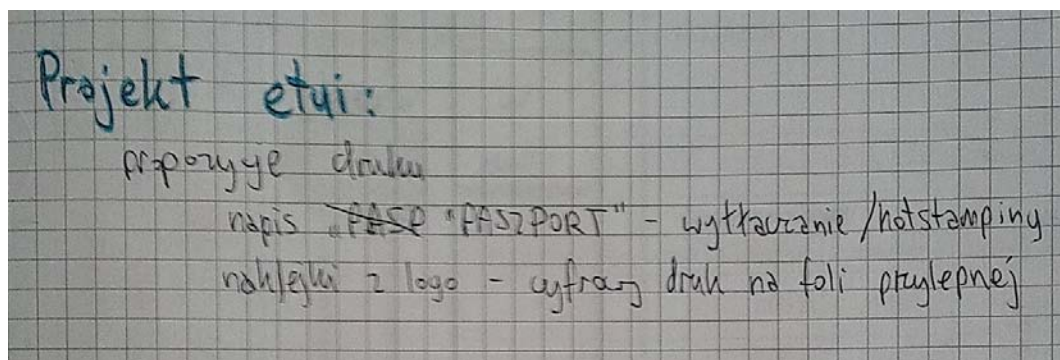 Projekt etui:
propozycje druku
napis "PASZPORT" - wytłaczanie/hotstamping
naklejki z logo - cyfrowy druk na foli przylepnej